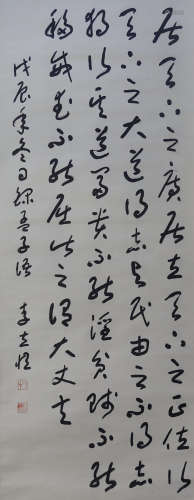 居天下之廣居立天下之正位行
天下之大道得志與民由之不得志
獨行其道富貴不能淫貧賤不能
移威武不能屈此之謂大丈夫
戊辰年冬日錄孟子語 李